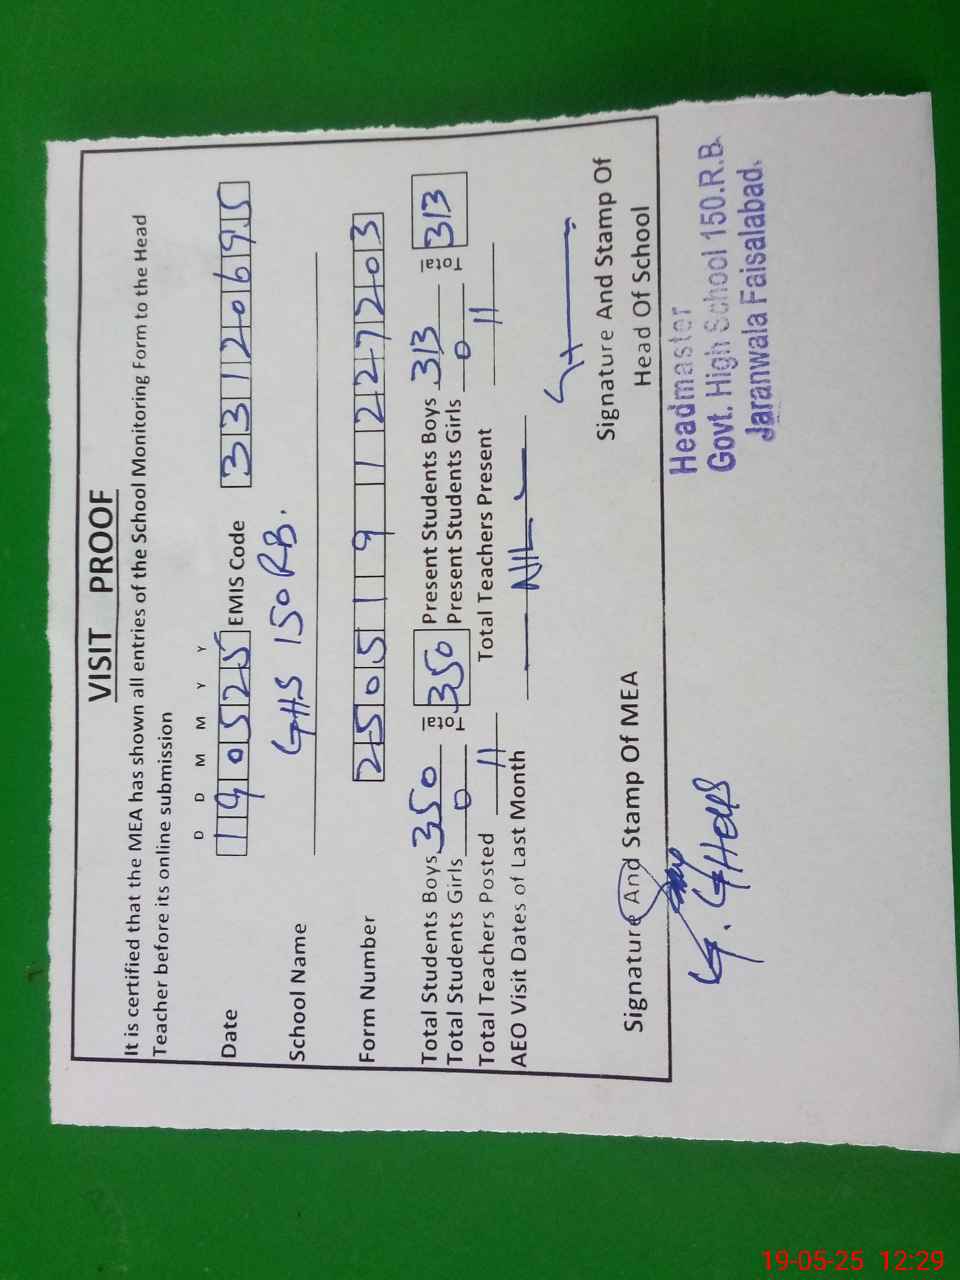 VISIT PROOF
It is certified that the MEA has shown all entries of the School Monitoring Form to the Head
Teacher before its online submission
D D M M Y Y
Date 190525 EMIS Code 33120695
School Name GHS 150 RB.
Form Number 25051911227203
Total Students Boys 350 Total 350 Present Students Boys 313 Total 313
Total Students Girls 0 Present Students Girls 0
Total Teachers Posted 11 Total Teachers Present 11
AEO Visit Dates of Last Month NIL
Signature And Stamp Of MEA
Signature And Stamp Of
Head Of School
Headmaster
Govt. High School 150.R.B.
Jaranwala Faisalabad.
19-05-25 12:29